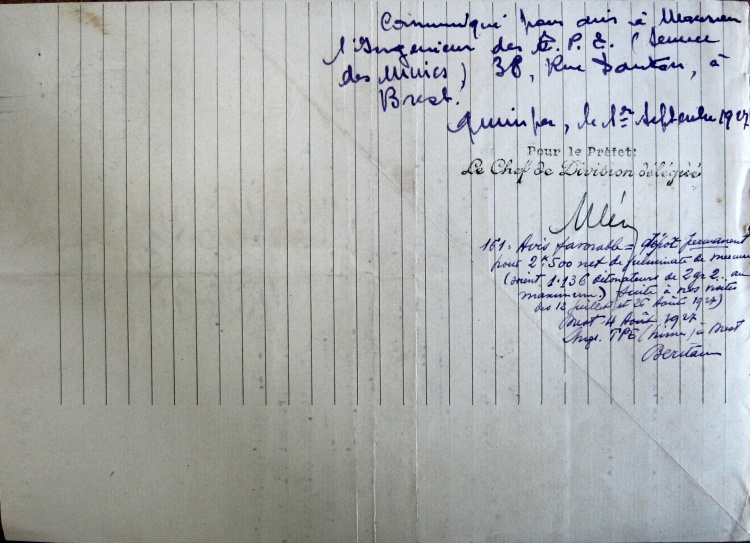 Communiqué pour avis à Monsieur
l'Ingénieur des T. P. E. (Service
des Mines) 38, Rue Danton, à
Brest.
Quimper, le 1er Septembre 1927
Pour le Préfet:
Le Chef de Division délégué
161. Avis favorable = dépôt permanent
pour 2k500 net de fulminate de mercure
(soient 1.136 détonateurs de 2gr2... au
maximum) suite à nos notes
des 12 juillet et 26 Août 1927)
Brest 4 Août 1927
Ingr. TPE (Mines) à Brest